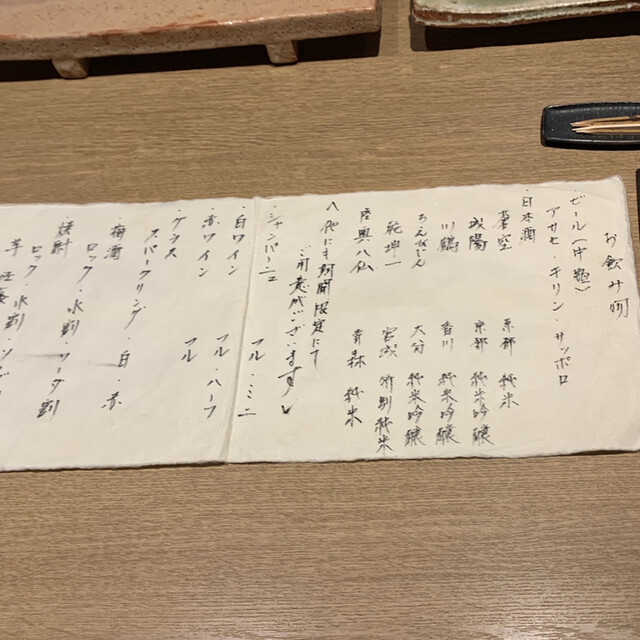 お飲み物
・ビール(中瓶)
アサヒ・キリン・サッポロ
・日本酒
蒼空 京都 純米
城陽 京都 純米吟醸
川鶴 香川 純米吟醸
ちえびじん 大分 純米吟醸
乾坤一 宮城 特別純米
陸奥八仙 青森 純米
他にも期間限定にて
ご用意がございます
・シャンパーニュ フル・ミニ
・白ワイン フル・ハーフ
・赤ワイン フル
・グラス
スパークリング・白・赤
・梅酒
ロック・水割・ソーダ割
・焼酎
ロック・水割・
芋